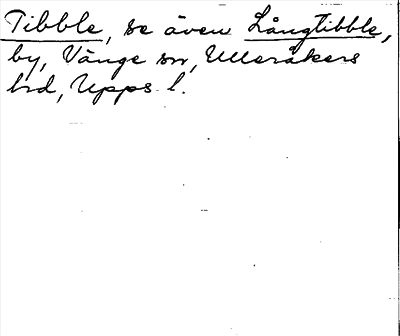 Tibble, se även Långtibble,
by, Vänge sn, Ulleråkers
hd, Upps. l.